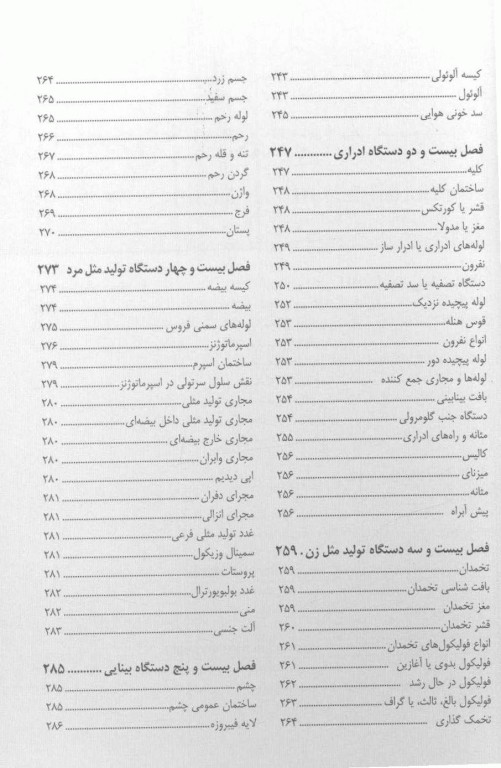 کیسه آلوئولی ........ ۲۴۳
آلوئول ........ ۲۴۳
سد خونی هوایی ........ ۲۴۵
فصل بیست و دو دستگاه ادراری ........ ۲۴۷
کلیه ........ ۲۴۷
ساختمان کلیه ........ ۲۴۸
قشر یا کورتکس ........ ۲۴۸
مغز یا مدولا ........ ۲۴۸
لوله‌های ادراری یا ادرار ساز ........ ۲۴۹
نفرون ........ ۲۴۹
دستگاه تصفیه یا سد تصفیه ........ ۲۵۰
لوله پیچیده نزدیک ........ ۲۵۲
قوس هنله ........ ۲۵۳
انواع نفرون ........ ۲۵۳
لوله پیچیده دور ........ ۲۵۳
لوله‌ها و مجاری جمع کننده ........ ۲۵۳
بافت بینابینی ........ ۲۵۴
دستگاه جنب گلومرولی ........ ۲۵۴
مثانه و راه‌های ادراری ........ ۲۵۵
کالیس ........ ۲۵۶
میزنای ........ ۲۵۶
مثانه ........ ۲۵۶
پیش آبراه ........ ۲۵۶
فصل بیست و سه دستگاه تولید مثل زن . ۲۵۹
تخمدان ........ ۲۵۹
بافت شناسی تخمدان ........ ۲۵۹
مغز تخمدان ........ ۲۵۹
قشر تخمدان ........ ۲۶۰
انواع فولیکول‌های تخمدان ........ ۲۶۱
فولیکول بدوی یا آغازین ........ ۲۶۱
فولیکول در حال رشد ........ ۲۶۲
فولیکول بالغ، ثالث، یا گراف ........ ۲۶۳
تخمک گذاری ........ ۲۶۴
جسم زرد ........ ۲۶۴
جسم سفید ........ ۲۶۵
لوله رحم ........ ۲۶۵
رحم ........ ۲۶۶
تنه و قله رحم ........ ۲۶۷
گردن رحم ........ ۲۶۸
واژن ........ ۲۶۸
فرج ........ ۲۶۹
پستان ........ ۲۷۰
فصل بیست و چهار دستگاه تولید مثل مرد ۲۷۳
کیسه بیضه ........ ۲۷۴
بیضه ........ ۲۷۴
لوله‌های سمنی فروس ........ ۲۷۵
اسپرماتوژنز ........ ۲۷۶
ساختمان اسپرم ........ ۲۷۹
نقش سلول سرتولی در اسپرماتوژنز ........ ۲۷۹
مجاری تولید مثلی ........ ۲۸۰
مجاری تولید مثلی داخل بیضه‌ای ........ ۲۸۰
مجاری خارج بیضه‌ای ........ ۲۸۰
مجاری وابران ........ ۲۸۰
اپی دیدیم ........ ۲۸۰
مجرای دفران ........ ۲۸۱
مجرای انزالی ........ ۲۸۱
غدد تولید مثلی فرعی ........ ۲۸۱
سمینال وزیکول ........ ۲۸۱
پروستات ........ ۲۸۱
غدد بولبویورترال ........ ۲۸۲
منی ........ ۲۸۲
آلت جنسی ........ ۲۸۳
فصل بیست و پنج دستگاه بینایی ........ ۲۸۵
چشم ........ ۲۸۵
ساختمان عمومی چشم ........ ۲۸۵
لایه فیبروزه ........ ۲۸۶